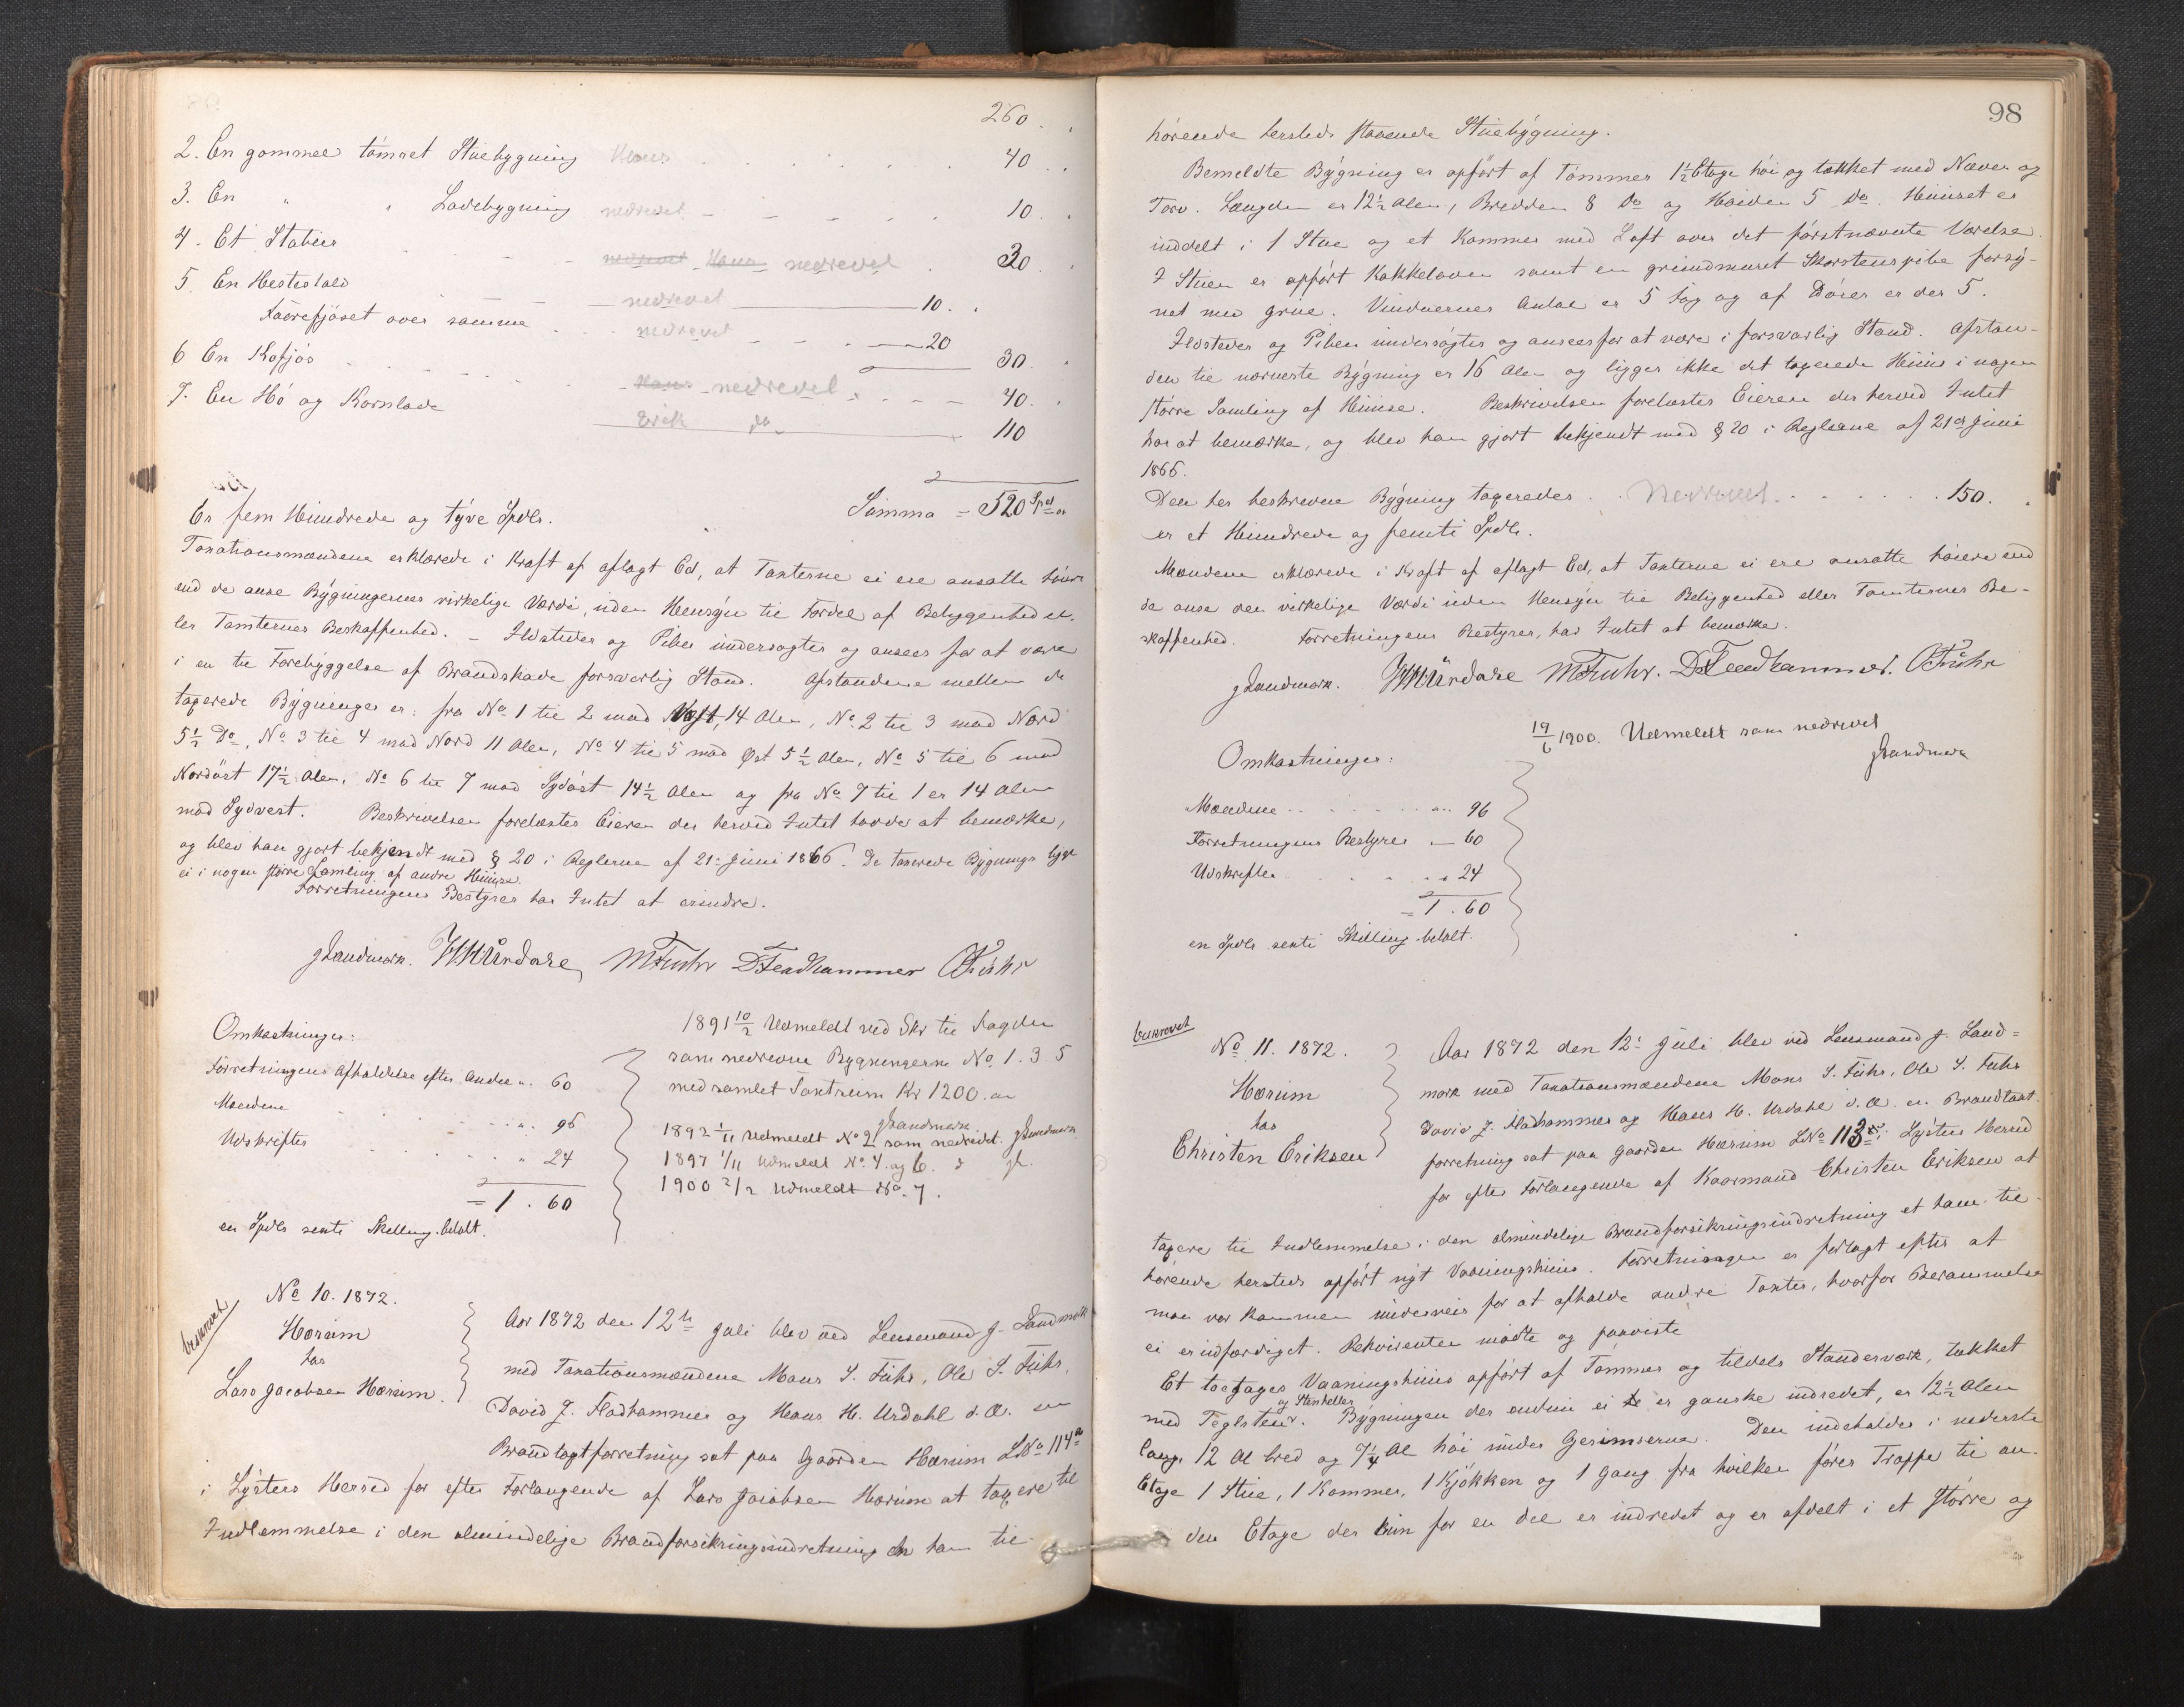 260 . .
2. En gammel tömret Stuebygning Hans . . . . . . 40 . .
3. En " " Ladebygning nedrevet - - - . . . 10 . .
4. Et Stabur - - - nedrevet Hans nedrevet . 30 . .
5. En Hestestald - - - nedrevet 10 . .
Faarefjöset over samme . . . nedrevet - - - 20
30 .
6 En Kofjös . . . . . Hans nedrevet . - - - 40 . .
7. En Hö og Kornlade Erik do 110
Er fem Hundrede og tyve Spdlr. Summa = 520 Spd
Taxationsmændene erklærede i Kraft af aflagt Ed, at Taxterne ei ere ansatte höiere
end de anse Bygningernes virkelige Værdi, uden Hensyn til Fordel af Beliggenhed el-
ler Tomternes Beskaffenhed. - Ildsteder og Piber undersøgtes og ansees for at være
i en til Forebyggelse af Brandskade forsvarlig Stand. Afstandene mellem de
taxerede Bygninger er: fra No 1 til 2 mod Vest, 14 Alen, No 2 til 3 mod Nord
5½ Do, No 3 til 4 mod Nord 11 Alen, No 4 til 5 mod Øst 5½ Alen, No 5 til 6 mod
Nordöst 17½ Alen, No 6 til 7 mod Sydöst 14½ Alen og fra No 7 til 1 er 14 Alen
mod Sydvest. Beskrivelsen forelæstes Eieren der herved Intet havde at bemærke,
og blev han gjort bekjendt med § 20 i Reglerne af 21de Juni 1866. De taxerede Bygninger ligge
ei i nogen större Samling af andre Huuse.
Forretningens Bestyrer har Intet at erindre.
J Landmark. HHUrdahl, MFuhr DFladhammer OFuhr
Omkostninger:
Forretningens Afholdelse efter Andel ". 60
Mændene . . . ". 96
Udskriften . . . " 24
= 1 . 60
en Spdlr sexti Skilling betalt.
1891 10/2 Udmeldt ved Skr til Fogden
som nedrevne Bygningerne No 1. 3 5
med samlet Taxtsum Kr 1200. "
JLandmark
1892 1/11 Udmeldt No 2 som nedrevet JLandmark
1897 1/11 Udmeldt No. 4. og 6.
1900 2/2 Udmeldt No. 7.
No 10. 1872.
beskrevet
Hærum
hos
Lars Jacobsen Hærum.
Aar 1872 den 12te Juli blev ved Lensmand J. Landmark
med Taxationsmændene Mons S. Fuhr, Ole S. Fuhr,
David J. Fladhammer og Hans H. Urdahl d. Æ. en
Brandtaxtforretning sat paa Gaarden Hærum LNo 114a
i Lysters Herred for efter Forlangende af Lars Jacobsen Hærum at taxere til
Indlemmelse i den almindelige Brandforsikringsindretning en ham til
98
hörende hersteds staaende Stuebygning.
Bemeldte Bygning er opfört af Tömmer 1½ Etage höi og tækket med Næver og
Torv. Længden er 12½ Alen, Bredden 8 Do og Höiden 5 Do. Huuset er
inddelt i 1 Stue og et Kammer med Loft over det förstnævnte Værelse.
I Stuen er opfört Kakkelovn samt en grundmuret Skorstenspibe forsy-
net med grue. Vinduernes Antal er 5 Fag og af Dörer er der 5.
Ildsteder og Piben undersögtes og ansees for at være i forsvarlig Stand. Afstan-
den til nærmeste Bygning er 16 Alen og ligger ikke det taxerede Huus i nogen
större Samling af Huuse. Beskrivelsen forelæstes Eieren der herved Intet
har at bemærke, og blev han gjort bekjendt med § 20 i Reglerne af 21de Juni
1866.
Den her beskrevne Bygning taxeredes . . Nedrevet . . . . . . 150. .
er et Hundrede og femti Spdlr.
Mændene erklærede i Kraft af aflagt Ed, at Taxterne ei ere ansatte höiere end
de anse den virkelige Værdi uden Hensyn til Beliggenhed eller Tomternes Be-
skaffenhed. Forretningens Bestyrer, har Intet at bemærke.
J Landmark. HHUrdahl MFuhr. DFladhammer. OFuhr
19/6 1900. Udmeldt som nedrevet
JLandmark
Omkostninger:
Mændene . . . . . . . ". 96
Forretningens Bestyrer - 60
Udskriften . . . " 24
= 1 . 60
en Spdlr sexti Skilling betalt.
beskrevet
No 11. 1872.
Hærum
hos
Christen Eriksen
Aar 1872 den 12te Juli blev ved Lensmand J. Land=
mark med Taxationsmændene Mons S. Fuhr, Ole S. Fuhr
David J. Fladhammer og Hans H. Urdahl d. Æ. en Brandtaxt
forretning sat paa Gaarden Hærum LNo 113 i Lysters Herred
for efter Forlangende af Kaarmand Christen Eriksen at
taxere til Indlemmelse i den almindelige Brandforsikringsindretning et ham til-
hörende hersteds opfört nyt Vaaningshuus. Forretningen er foretaget efter at
man var kommen underveis for at afholde andre Taxter, hvorfor Berammelse
ei er udfærdiget. Rekvirenten mödte og paaviste
Et toetages Vaaningshuus opfört af Tömmer og tildels Standerværk, tækket
og Stenheller
med Teglsten. Bygningen der endnu ei er ganske indredet, er 12½ Alen
lang, 12 Al bred og 7¼ Al höi under Gesimserne. Den indeholder i nederste
Etage 1 Stue, 1 Kammer, 1 Kjökken og 1 Gang fra hvilken förer Trappe til an-
den Etage der kun for en Del er indredet og er afdelt i et större og